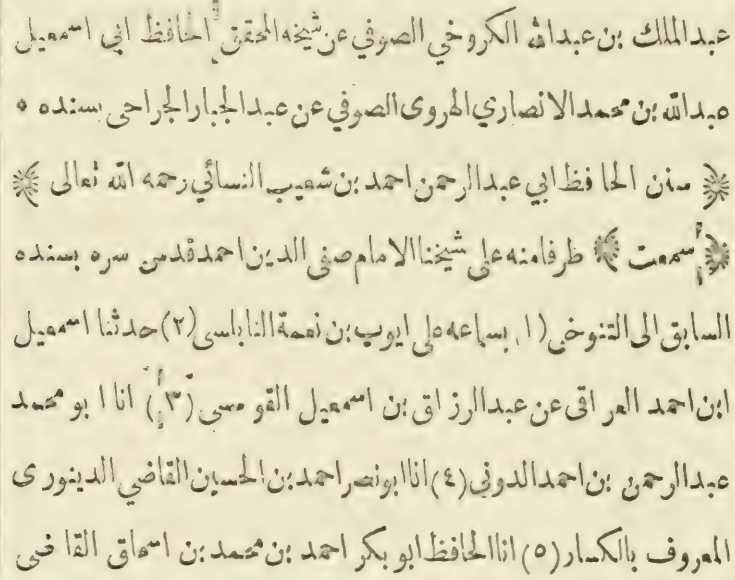 عبدالملك بن عبدالله الكروخي الصوفي عن شيخه المحقق الحافظ ابي اسمعيل
عبدالله بن محمد الانصاري الهروى الصوفي عن عبدالجبار الجراحى بسنده *
﴿ سنن الحافظ ابي عبدالرحمن احمد بن شعيب النسائي رحمه الله تعالى ﴾
﴿ سمعت ﴾ طرفا منه على شيخنا الامام صفى الدين احمد قدس سره بسنده
السابق الى التنوخى (١) بسماعه على ايوب بن نعمة النابلسى (٢) حدثنا اسمعيل
ابن احمد العراقى عن عبدالرزاق بن اسمعيل القومسى (٣) انا ابو محمد
عبدالرحمن بن احمد الدونى (٤) انا ابونصر احمد بن الحسين القاضي الدينورى
المعروف بالكسار (٥) انا الحافظ ابو بكر احمد بن محمد بن اسحاق القاضى